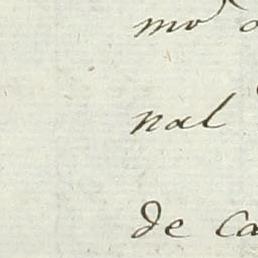 mo
nal
de ca